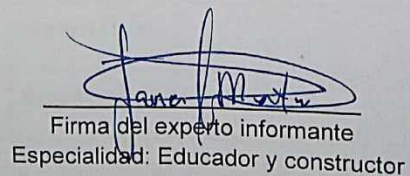 Firma del experto informante
Especialidad: Educador y constructor